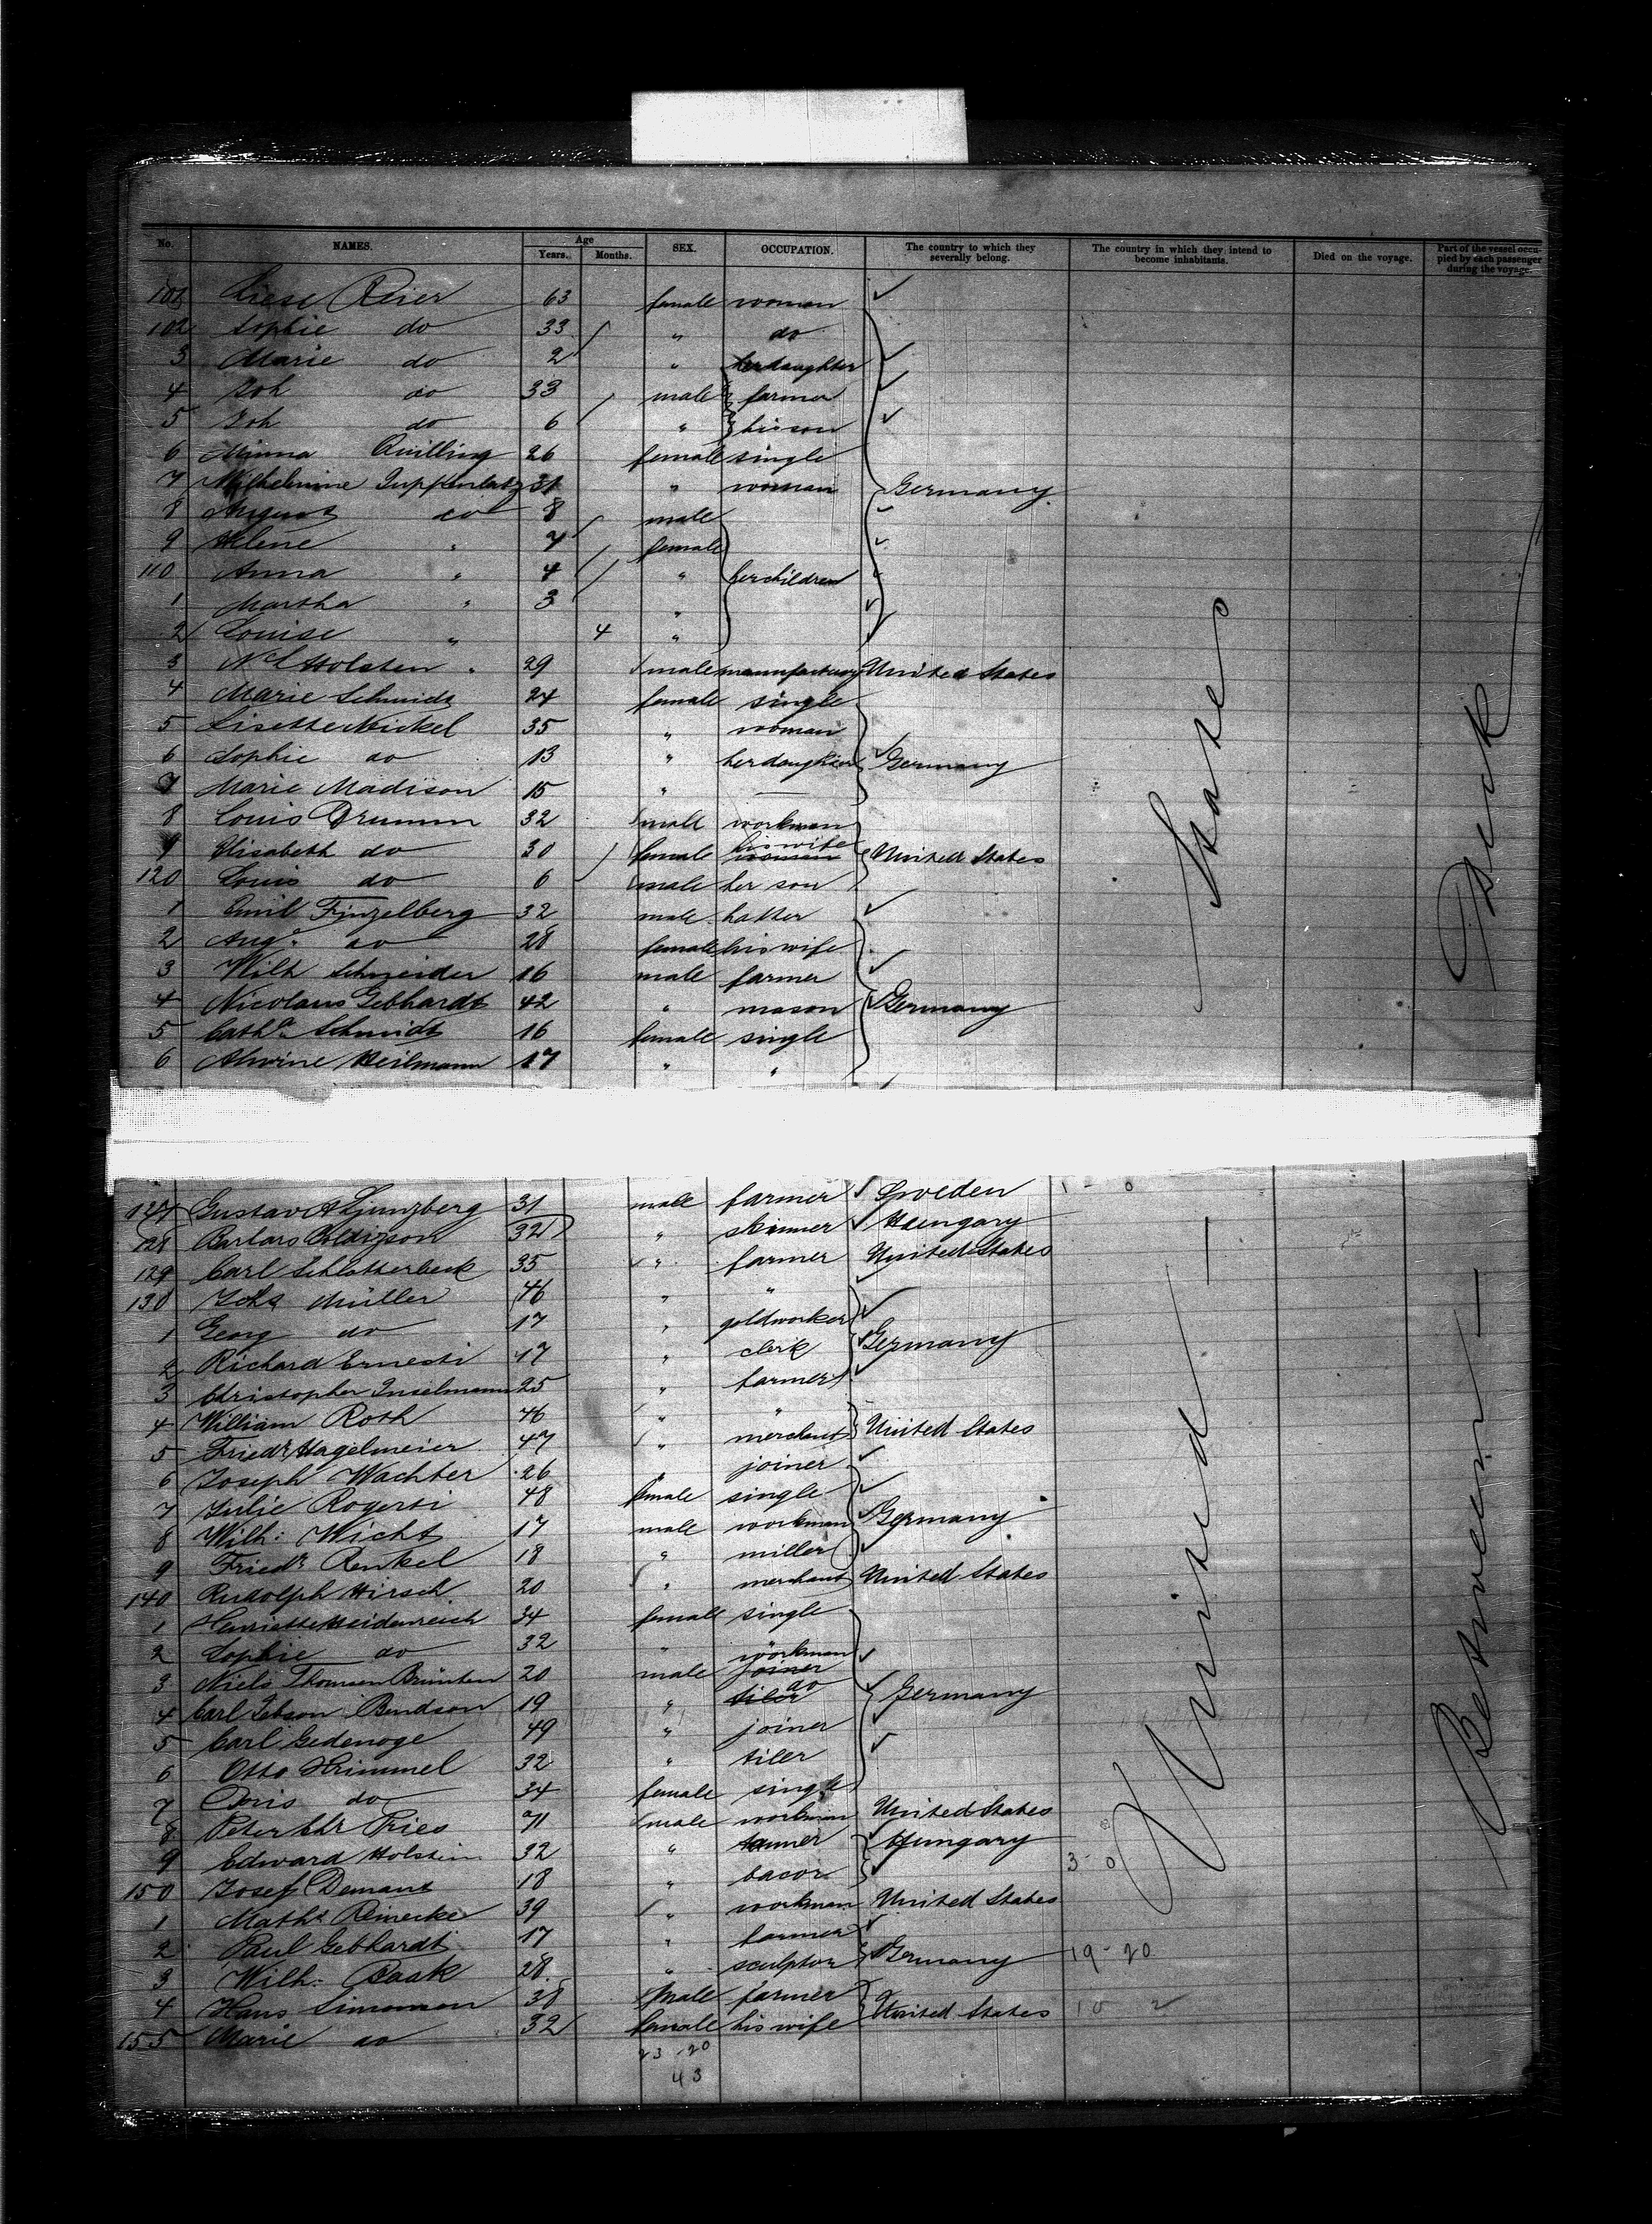 No. NAMES. Age Years. Months. SEX. OCCUPATION. The country to which they severally belong. The country in which they intend to become inhabitants. Died on the voyage. Part of the vessel occupied by each passenger during the voyage.
101 Liese Reier 63 female woman
102 Sophie do 33 " do
3 Marie do 2 " her daughter
4 Joh do 33 male farmer
5 Joh do 6 " his son
6 Minna Quilling 26 female single
7 Wilhelmine 31 " woman Germany
8 August do 8 male
9 Helene " 7 female
110 Anna " 4 " her children
1 Martha " 3 "
2 Louise " 4 "
3 Holsten 29 male United States
4 Marie Schmidt 24 female single
5 Lisette Nickel 35 " woman
6 Sophie do 13 " her daughter Germany
7 Marie Madison 15 " —
8 Louis Drumm 32 male workman
9 Elisabeth do 30 female his wife United States
120 Louis do 6 male her son
1 Emil Finzelberg 32 male hatter
2 Auga do 28 female his wife
3 Wilh Schneider 16 male farmer
4 Nicolaus Gebhardt 42 " mason Germany
5 Catha Schmidt 16 female single
6 Alwine Heilmann 17 " "
States
Deck
127 Gustav A Ljungberg 31 male farmer Sweden
128 32 " skinner Hungary
129 Carl Schlotterbeck 35 " farmer United States
130 Müller 46 " "
1 Georg do 17 " goldworker
2 Richard Ernesti 17 " clerk Germany
3 Christopher Inselmann 25 " farmer
4 William Roth 46 " "
5 Friedr Hagelmeier 47 " merchant United States
6 Joseph Wachter 26 " joiner
7 Julie Rogersi 48 female single
8 Wilh: Wicht 17 male workman Germany
9 Friedr Renkel 18 " miller
140 Rudolph Hirsch 20 " merchant United States
1 Henriette Heidenreich 34 female single
2 Sophie do 32 "
3 Niels Thomsen 20 male workman joiner
4 Carl Bendson 19 " do tiler Germany
5 Carl Gedenoge 49 " joiner
6 Otto Krimmel 32 " tiler
7 Doris do 34 female single
8 Peter Chr Pries 71 male workman United States
9 Edward Holstein 32 " tanner Hungary
150 Josef Demant 18 " 3-0
1 Maths Reinecke 39 " workman United States
2 Paul Gebhardt 17 " farmer
3 Wilh: Baak 28 " sculptor Germany 19-20
4 Hans Simonsen 38 male farmer
155 Marie do 32 female his wife United States 10 2
23-20
43
United
Between